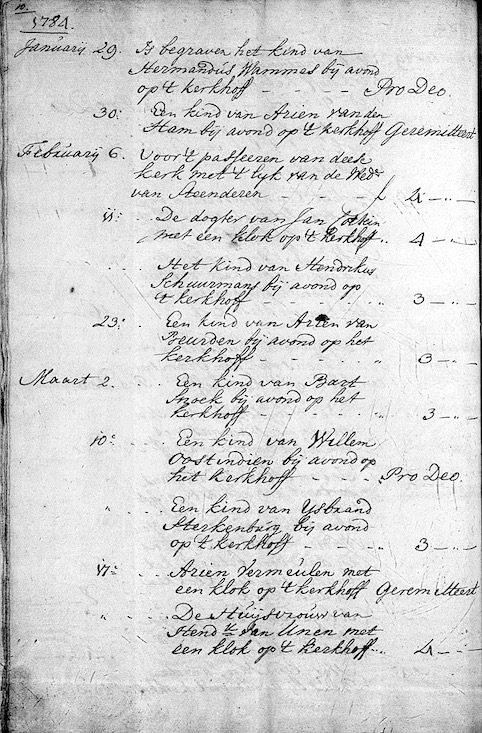 10.
1784.
Januarij 29. Is begraven het kind van
Hermandus Wammes bij avond
op 't kerkhoff - - - - Pro Deo.
30: Een kind van Arien van den
Ham bij avond op 't kerkhoff Geremitteert
Februarij 6. Voor 't passeeren van deese
kerk met 't lijk van de Wedr
van Steenderen - - - - f 4 - „ -
11: . . De dogter van Jan
met een klok op 't kerkhoff „ 4 - „ -
. . . Het kind van Hendrikus
Schuurmans bij avond op
't kerkhoff „ 3 - „ -
23: . Een kind van Arien van
Beurden bij avond op het
kerkhoff - - - - „ 3 - „ -
Maart 2. . . Een kind van Bart
Snoek bij avond op het
kerkhoff - - - - - „ 3 - „ -
10: . . Een kind van Willem
Oostindien bij avond op
het kerkhoff - - - - Pro Deo.
„ . . . Een kind van Ysbrand
Sterkenburg bij avond
op 't kerkhoff - - - - 3 - „ -
. . . Arien Vermeulen met
een klok op 't kerkhoff Geremitteert
„ . . . De Huijsvrouw van
Hend Jan Unen met
een klok op 't kerkhoff „ 4 - „ -